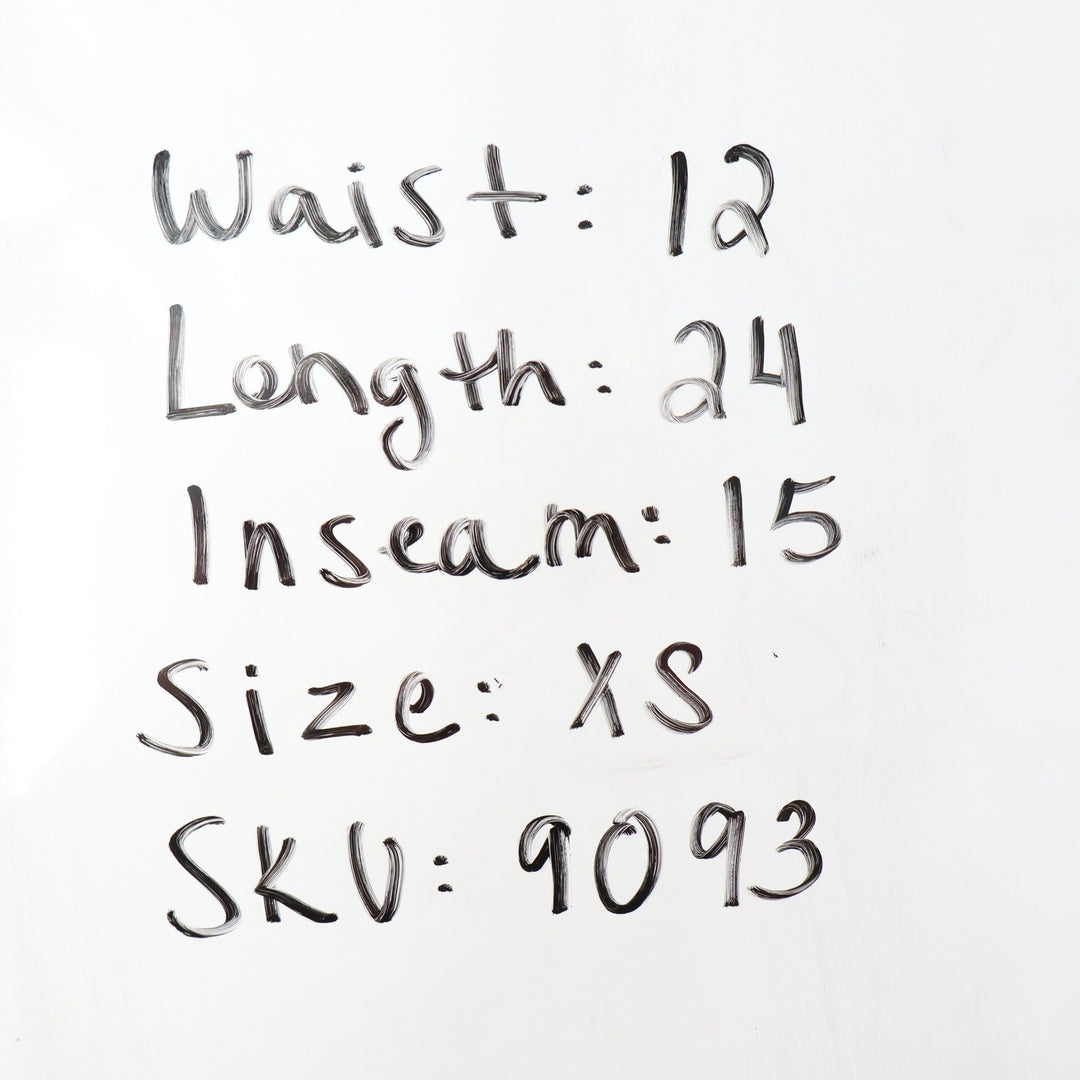 Waist: 12
Length: 24
Inseam: 15
Size: XS
SKU: 9093